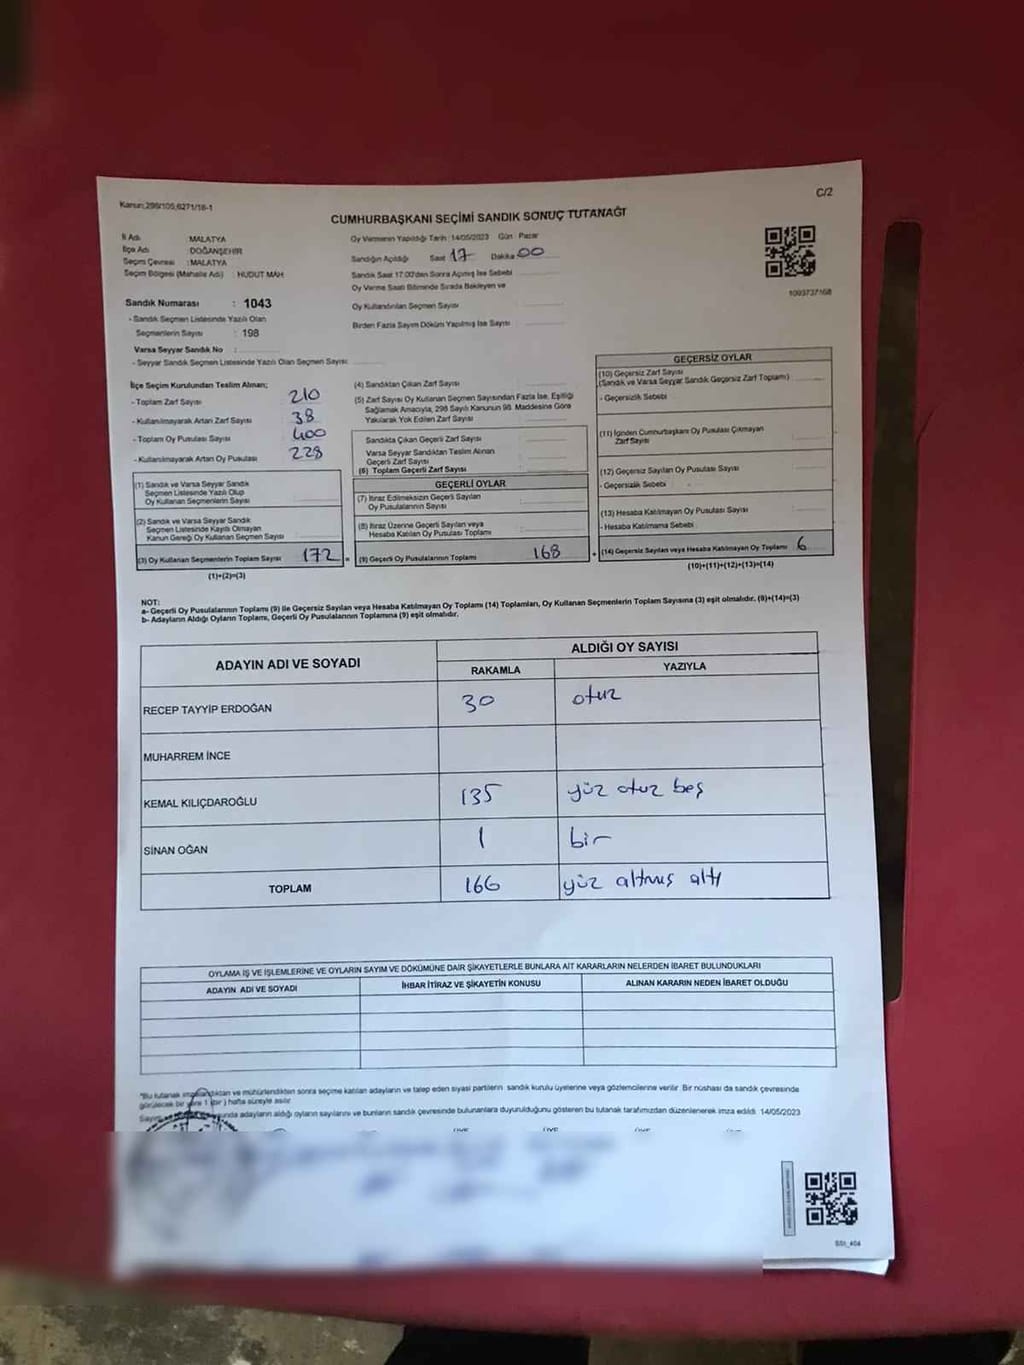 Kanun:298/105,6271/16-1
C/2
CUMHURBAŞKANI SEÇİMİ SANDIK SONUÇ TUTANAĞI
İl Adı : MALATYA
İlçe Adı : DOĞANŞEHİR
Seçim Çevresi : MALATYA
Seçim Bölgesi (Mahalle Adı) : HUDUT MAH
Sandık Numarası : 1043
- Sandık Seçmen Listesinde Yazılı Olan
Seçmenlerin Sayısı : 198
Varsa Seyyar Sandık No :
- Seyyar Sandık Seçmen Listesinde Yazılı Olan Seçmen Sayısı:
Oy Vermenin Yapıldığı Tarih :14/05/2023 Gün : Pazar
Sandığın Açıldığı Saat 17 Dakika 00
Sandık Saat 17:00'den Sonra Açılmış İse Sebebi
Oy Verme Saati Bitiminde Sırada Bekleyen ve
Oy Kullandırılan Seçmen Sayısı
Birden Fazla Sayım Döküm Yapılmış İse Sayısı
1093737168
İlçe Seçim Kurulundan Teslim Alınan;
- Toplam Zarf Sayısı 210
- Kullanılmayarak Artan Zarf Sayısı 38
- Toplam Oy Pusulası Sayısı 400
- Kullanılmayarak Artan Oy Pusulası 228
(1) Sandık ve Varsa Seyyar Sandık
Seçmen Listesinde Yazılı Olup
Oy Kullanan Seçmenlerin Sayısı
(2) Sandık ve Varsa Seyyar Sandık
Seçmen Listesinde Kayıtlı Olmayan
Kanun Gereği Oy Kullanan Seçmen Sayısı
(3) Oy Kullanan Seçmenlerin Toplam Sayısı 172 =
(1)+(2)=(3)
(4) Sandıktan Çıkan Zarf Sayısı
(5) Zarf Sayısı Oy Kullanan Seçmen Sayısından Fazla İse, Eşitliği
Sağlamak Amacıyla, 298 Sayılı Kanunun 98. Maddesine Göre
Yakılarak Yok Edilen Zarf Sayısı
Sandıkta Çıkan Geçerli Zarf Sayısı
Varsa Seyyar Sandıktan Teslim Alınan
Geçerli Zarf Sayısı
(6) Toplam Geçerli Zarf Sayısı
GEÇERLİ OYLAR
(7) İtiraz Edilmeksizin Geçerli Sayılan
Oy Pusulalarının Sayısı
(8) İtiraz Üzerine Geçerli Sayılan veya
Hesaba Katılan Oy Pusulası Toplamı
(9) Geçerli Oy Pusulalarının Toplamı 168 +
GEÇERSİZ OYLAR
(10) Geçersiz Zarf Sayısı
(Sandık ve Varsa Seyyar Sandık Geçersiz Zarf Toplamı)
- Geçersizlik Sebebi
(11) İçinden Cumhurbaşkanı Oy Pusulası Çıkmayan
Zarf Sayısı
(12) Geçersiz Sayılan Oy Pusulası Sayısı
- Geçersizlik Sebebi
(13) Hesaba Katılmayan Oy Pusulası Sayısı
- Hesaba Katılmama Sebebi
(14) Geçersiz Sayılan veya Hesaba Katılmayan Oy Toplamı 6
(10)+(11)+(12)+(13)=(14)
NOT:
a- Geçerli Oy Pusulalarının Toplamı (9) ile Geçersiz Sayılan veya Hesaba Katılmayan Oy Toplamı (14) Toplamları, Oy Kullanan Seçmenlerin Toplam Sayısına (3) eşit olmalıdır. (9)+(14)=(3)
b- Adayların Aldığı Oyların Toplamı, Geçerli Oy Pusulalarının Toplamına (9) eşit olmalıdır.
ADAYIN ADI VE SOYADI
ALDIĞI OY SAYISI
RAKAMLA YAZIYLA
RECEP TAYYİP ERDOĞAN 30 otuz
MUHARREM İNCE
KEMAL KILIÇDAROĞLU 135 yüz otuz beş
SİNAN OĞAN 1 bir
TOPLAM 166 yüz altmış altı
OYLAMA İŞ VE İŞLEMLERİNE VE OYLARIN SAYIM VE DÖKÜMÜNE DAİR ŞİKAYETLERLE BUNLARA AİT KARARLARIN NELERDEN İBARET BULUNDUKLARI
ADAYIN ADI VE SOYADI İHBAR İTİRAZ VE ŞİKAYETİN KONUSU ALINAN KARARIN NEDEN İBARET OLDUĞU
*Bu tutanak imzalandıktan ve mühürlendikten sonra seçime katılan adayların ve talep eden siyasi partilerin sandık kurulu üyelerine veya gözlemcilerine verilir. Bir nüshası da sandık çevresinde
görülecek bir yere 1 (bir) hafta süreyle asılır.
adayların aldığı oyların sayılarını ve bunların sandık çevresinde bulunanlara duyurulduğunu gösteren bu tutanak tarafımızdan düzenlenerek imza edildi. 14/05/2023
ÜYE ÜYE ÜYE ÜYE
SSt_404